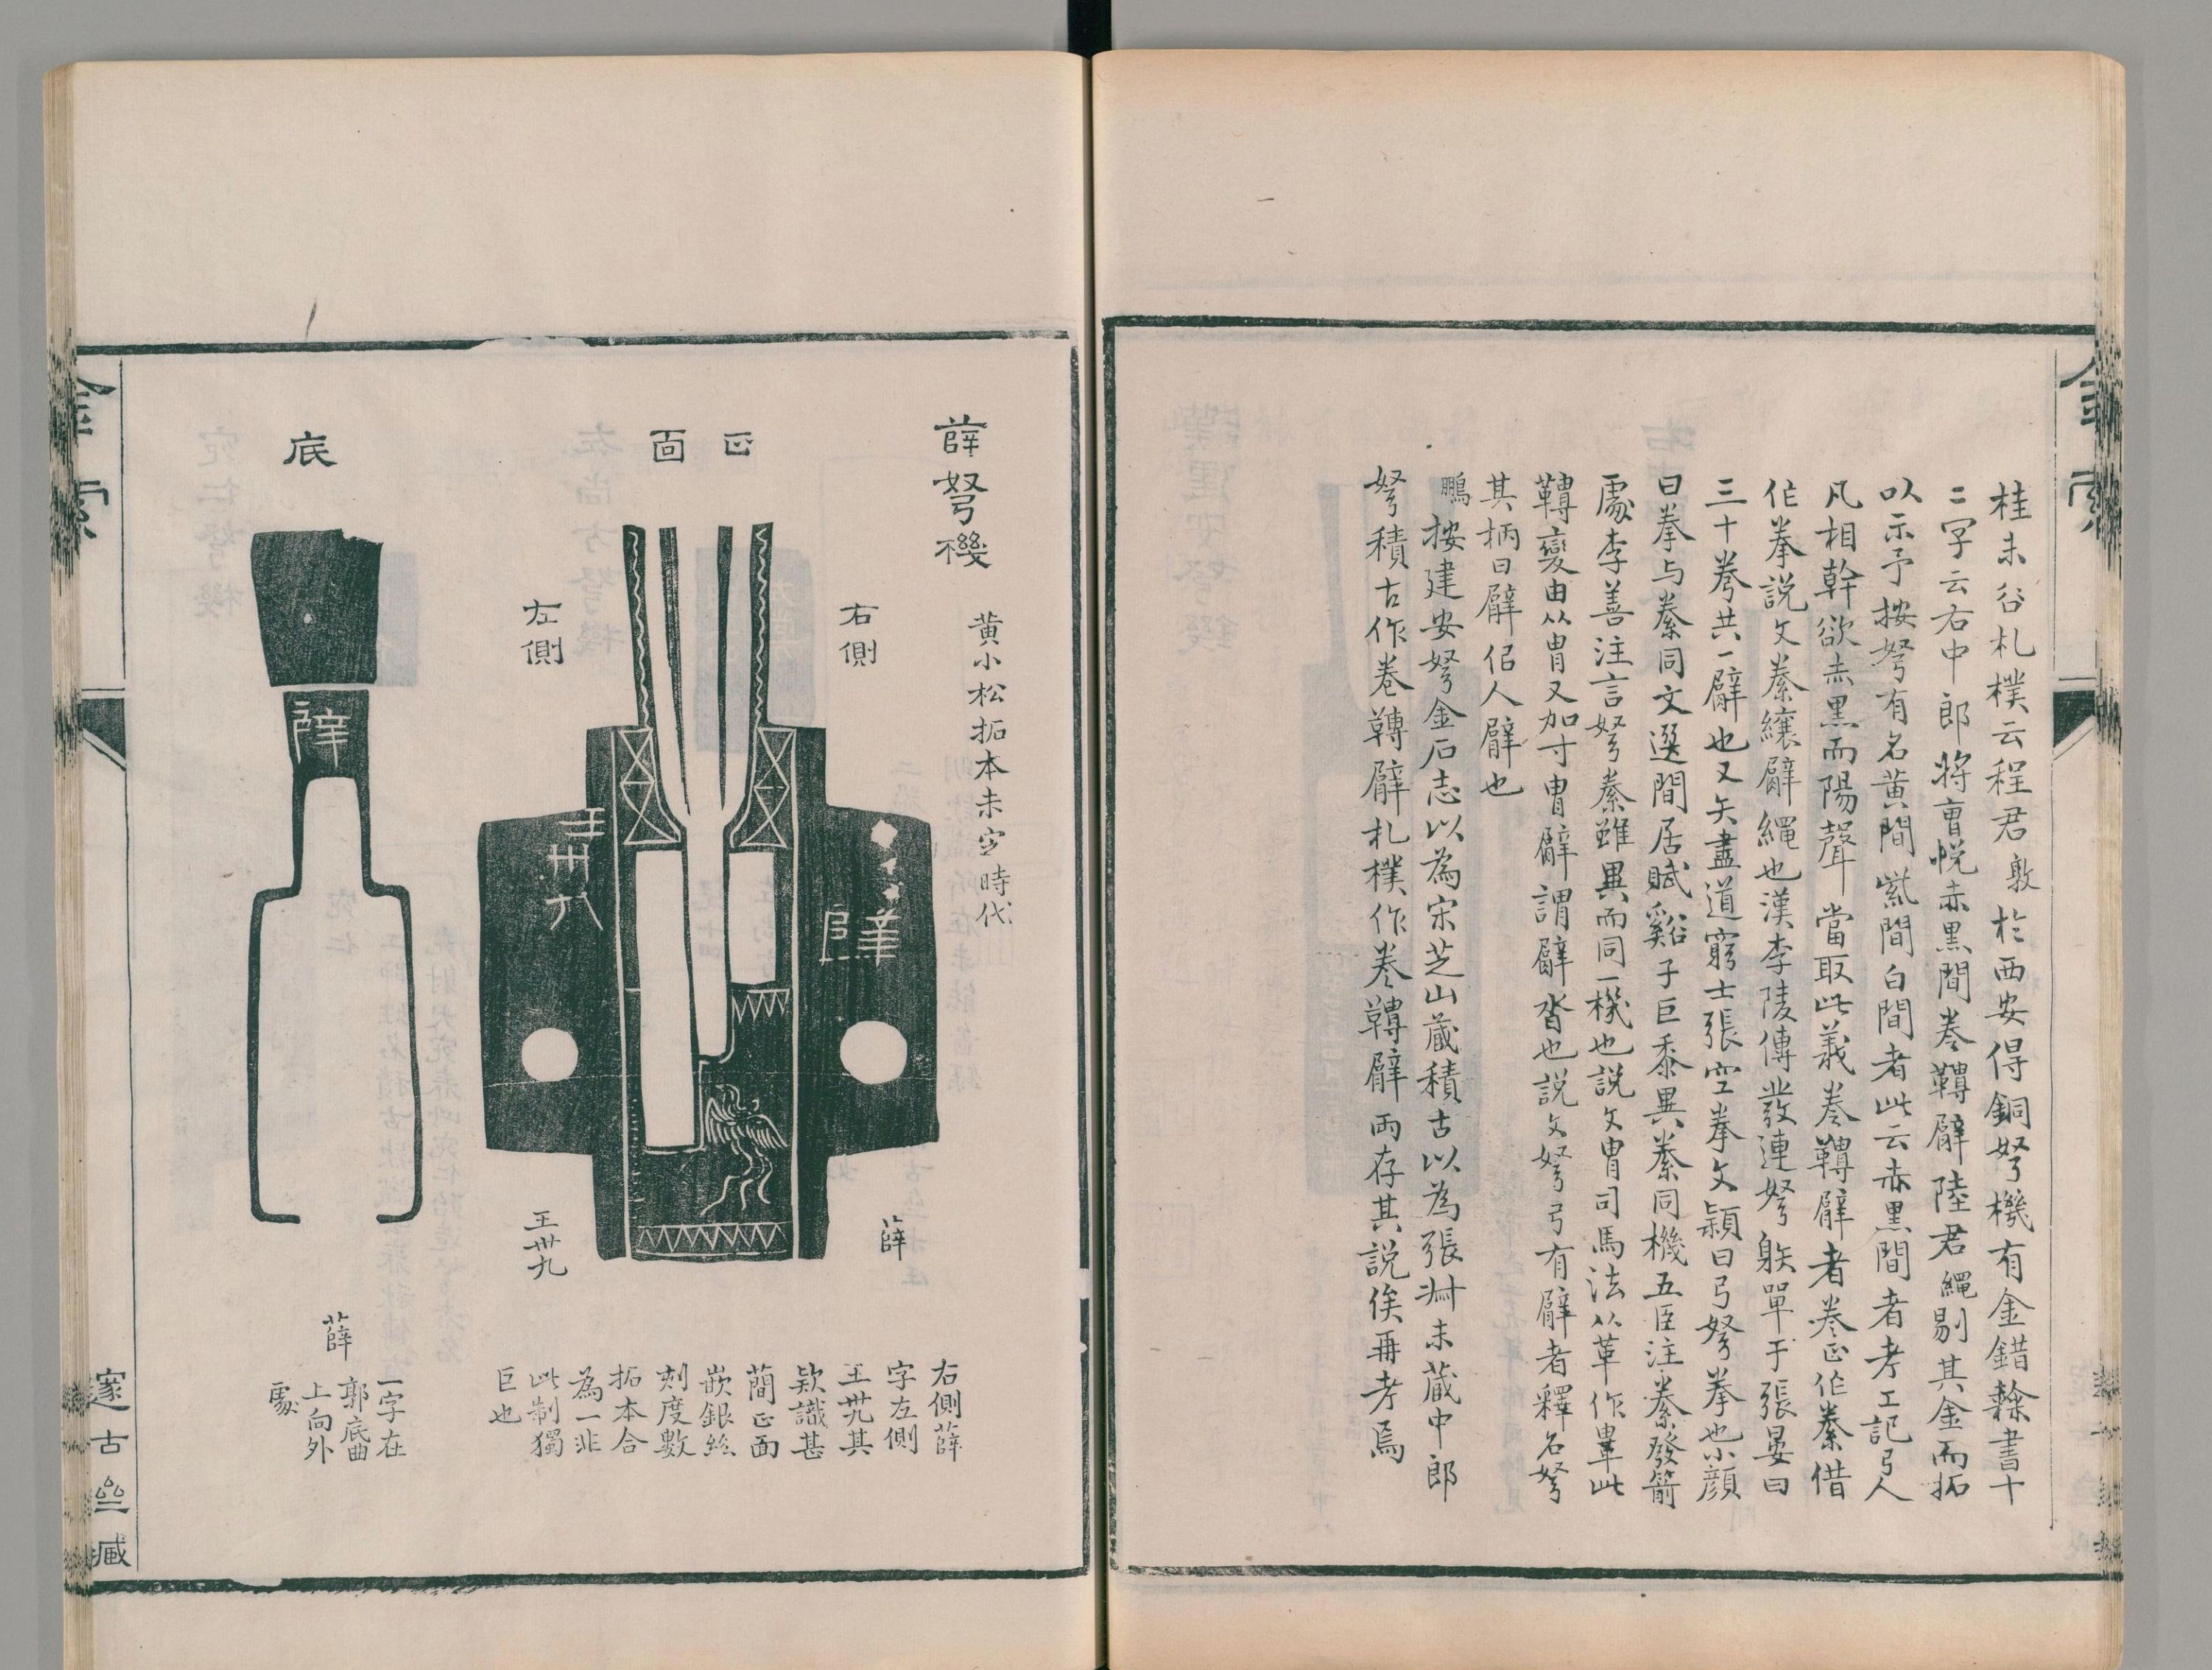 金索
桂未谷札樸云程君敦於西安得銅弩機有金錯隸書十
二字云右中郎將曹悅赤黑間卷䩵臂陸君繩剔其金而拓
以示予按弩有名黃間紫間白間者此云赤黑間者考工記弓人
凡相幹欲赤黑而陽聲當取此義卷䩵臂者卷正作絭借
作拳說文絭纕臂繩也漢李陵傳發連弩躲單于張晏曰
三十絭共一臂也又矢盡道窮士張空拳文穎曰弓弩拳也小顏
曰拳与絭同文選閒居賦谿子巨黍異絭同機五臣注絭發箭
處李善注言弩絭雖異而同一機也說文冑司馬法从革作䩜此
䩵變由从冑又加寸冑臂謂臂沓也說文弩弓有臂者釋名弩
其柄曰臂侣人臂也
鵬按建安弩金石志以為宋芝山藏積古以為張尗未藏中郎
弩積古作卷轉臂札樸作卷䩵臂兩存其說俟再考焉
薛弩機
黃小松拓本未定時代
正面
右側
左側
底
薛
王卅八
薛
薛
王卅九
右側薛
字左側
王卅九其
欵識甚
簡正面
嵌銀絲
刻度數
拓本合
為一非
此制獨
巨也
薛
一字在
郭底曲
上向外
處
金索
邃古齋臧